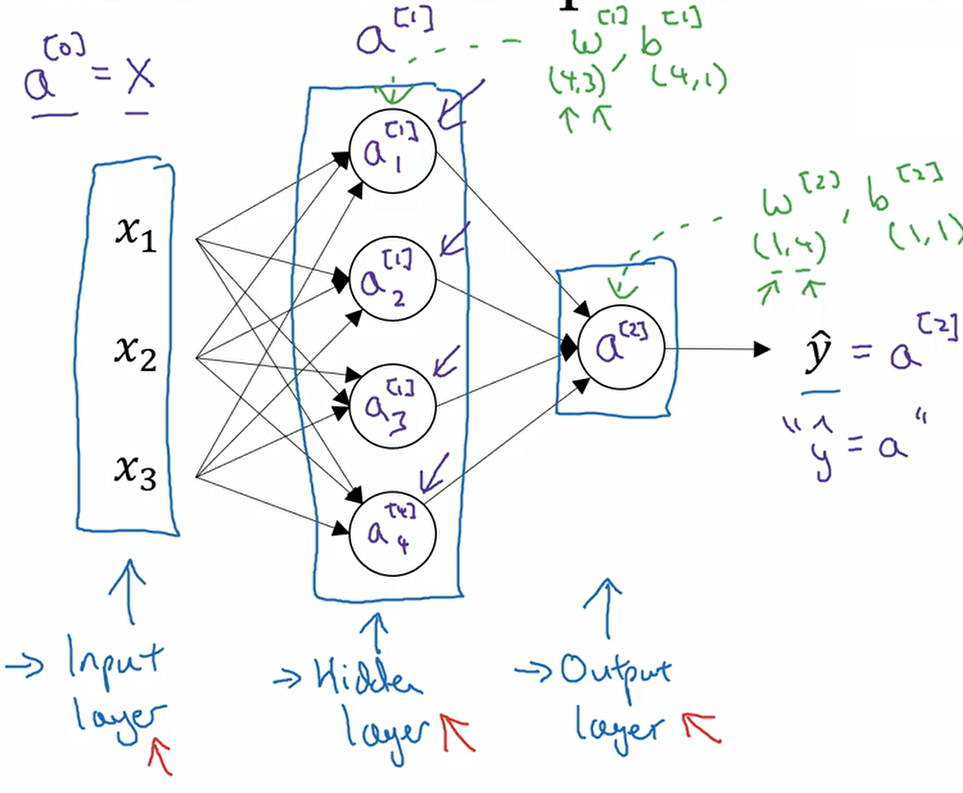 a^[0] = X
a^[1]
w^[1], b^[1]
(4,3) (4,1)
x₁
x₂
x₃
a₁^[1]
a₂^[1]
a₃^[1]
a₄^[4]
w^[2], b^[2]
(1,4) (1,1)
a^[2]
ŷ = a^[2]
"ŷ = a"
→ Input
layer
→ Hidden
layer
→ Output
layer